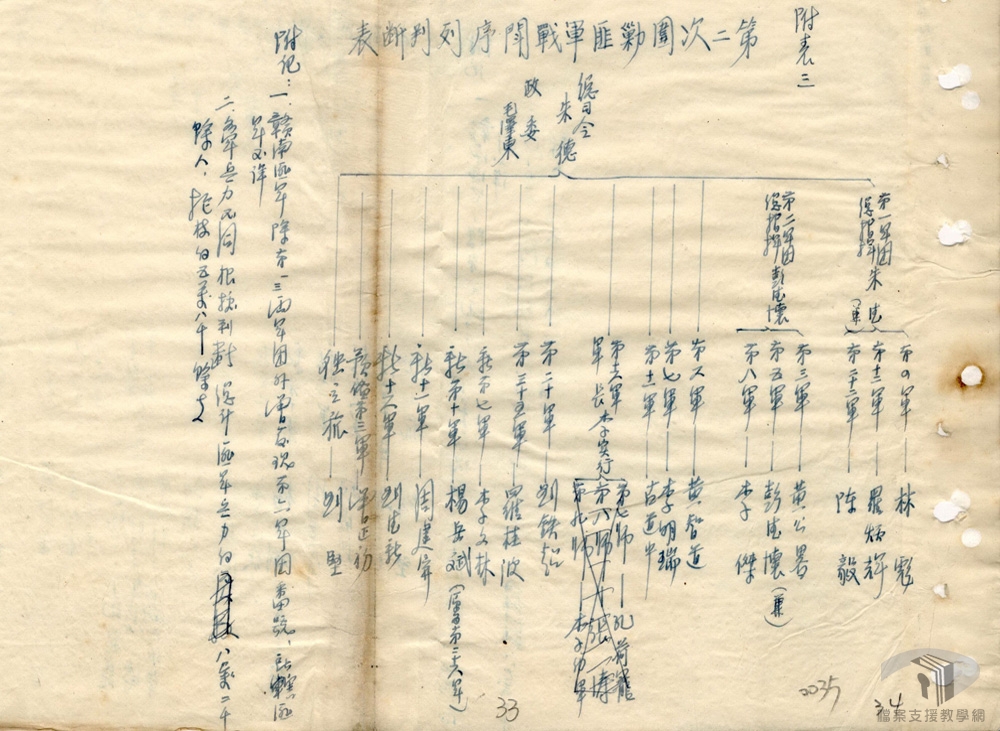 附表三
第二次圍剿匪軍戰鬥序列判斷表
總司令 朱德
政委 毛澤東
第一軍團總指揮 朱德(兼)
第四軍 林彪
第十二軍 羅炳輝
第二十二軍 陳毅
總指揮 彭德懷
第三軍 黃公畧
第五軍 彭德懷(兼)
第八軍 李傑
第六軍 黃智道
第七軍 李明瑞
第十一軍 古道中
軍長李實行
第七師 孔荷寵
第八師
第九師
第二十軍 劉鉄超
第二十五軍 羅桂波
李文林
新第十軍 楊岳斌
新十一軍 周建屏
新十六軍
第三軍
獨立旅 劉堅
附記:
一、贛南匪軍除有一三兩軍團外曾發現第六軍團番號、所轄匪軍不詳
二、各軍兵力不同根據判斷總計匪軍兵力約八萬二千餘人、
33
2035
34
檔案支援教學網